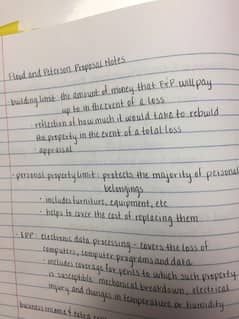 Floud and Peterson Proposal Notes
building limit: the amount of money that E&P will pay
up to in the event of a loss
reflection of how much it would take to rebuild
the property in the event of a total loss
· appraisal
· personal property limit: protects the majority of personal
belongings
· includes furniture, equipment, etc
· helps to cover the cost of replacing them
· EDP: electronic data processing - covers the loss of
computers, computer programs and data
· includes coverage for perils to which such property
is susceptible: mechanical breakdown, electrical
injury and changes in temperature or humidity
business income & extra